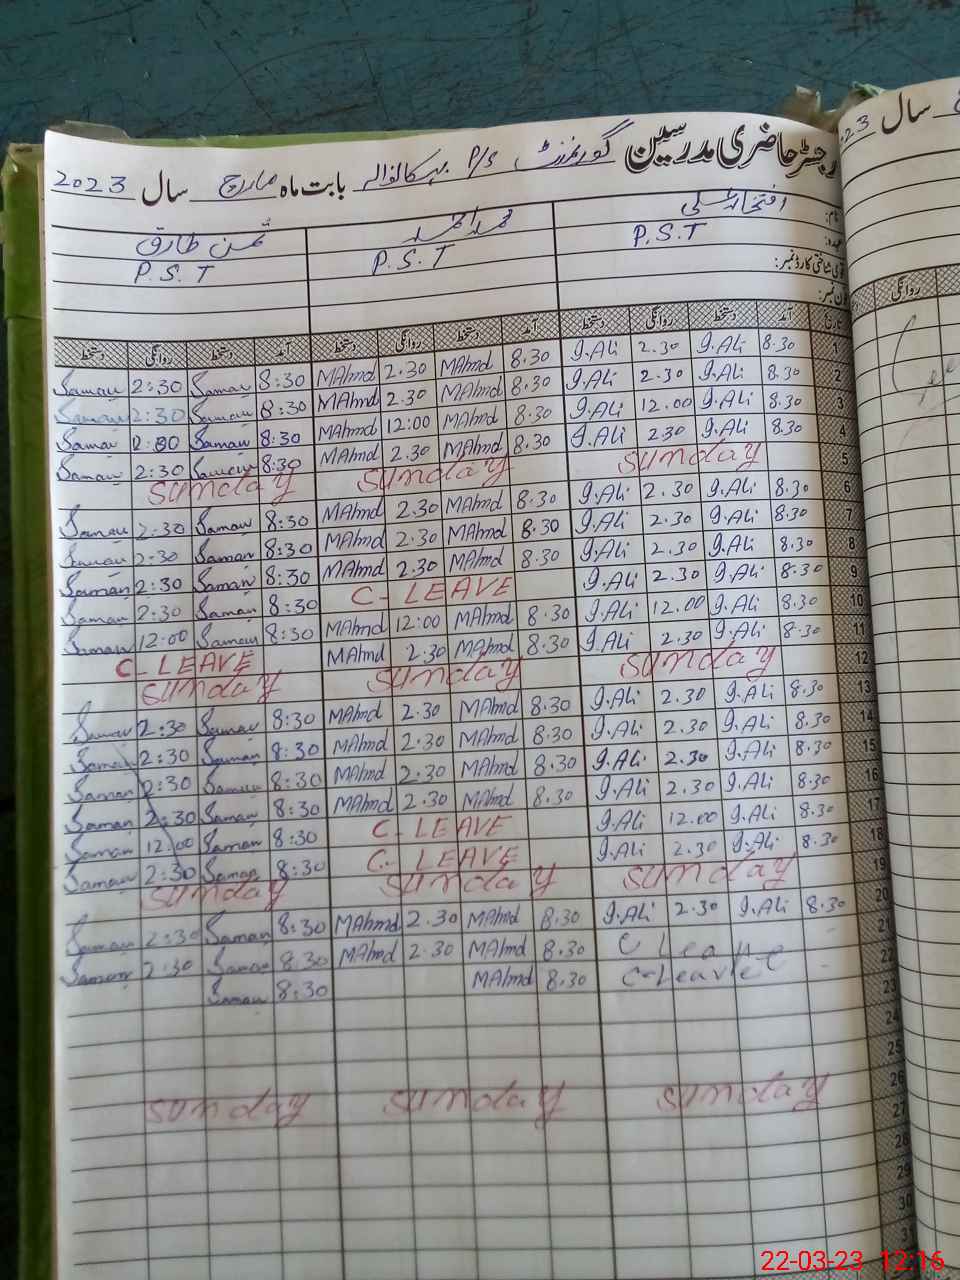 رجسٹر حاضری مدرسین گورنمنٹ P/s بہکانوالہ بابت ماہ مارچ سال 2023
نام: افتخار علی محمد احمد ثمن طارق
عہدہ: P.S.T P.S.T P.S.T
قومی شناختی کارڈ نمبر:
فون نمبر:
تاریخ آمد دستخط روانگی دستخط آمد دستخط روانگی دستخط آمد دستخط روانگی دستخط
1 8.30 I.Ali 2.30 I.Ali 8.30 MAhmd 2.30 MAhmd 8:30 Saman 2:30 Saman
2 8.30 I.Ali 2.30 I.Ali 8.30 MAhmd 2.30 MAhmd 8:30 Saman 2:30 Saman
3 8.30 I.Ali 12.00 I.Ali 8.30 MAhmd 12:00 MAhmd 8:30 Saman 12:00 Saman
4 8.30 I.Ali 2.30 I.Ali 8.30 MAhmd 2.30 MAhmd 8:30 Saman 2:30 Saman
5 Sunday Sunday Sunday
6 8.30 I.Ali 2.30 I.Ali 8.30 MAhmd 2.30 MAhmd 8:30 Saman 2:30 Saman
7 8.30 I.Ali 2.30 I.Ali 8.30 MAhmd 2.30 MAhmd 8:30 Saman 2:30 Saman
8 8.30 I.Ali 2.30 I.Ali 8.30 MAhmd 2.30 MAhmd 8:30 Saman 2:30 Saman
9 8.30 I.Ali 2.30 I.Ali C-LEAVE 8:30 Saman 2:30 Saman
10 8.30 I.Ali 12.00 I.Ali 8.30 MAhmd 12:00 MAhmd 8:30 Saman 12:00 Saman
11 8.30 I.Ali 2.30 I.Ali 8.30 MAhmd 2.30 MAhmd C-LEAVE
12 Sunday Sunday Sunday
13 8.30 I.Ali 2.30 I.Ali 8.30 MAhmd 2.30 MAhmd 8:30 Saman 2:30 Saman
14 8.30 I.Ali 2.30 I.Ali 8.30 MAhmd 2.30 MAhmd 8:30 Saman 2:30 Saman
15 8.30 I.Ali 2.30 I.Ali 8.30 MAhmd 2.30 MAhmd 8:30 Saman 2:30 Saman
16 8.30 I.Ali 2.30 I.Ali 8.30 MAhmd 2.30 MAhmd 8:30 Saman 2:30 Saman
17 8.30 I.Ali 12.00 I.Ali C-LEAVE 8:30 Saman 12:00 Saman
18 8.30 I.Ali 2.30 I.Ali C-LEAVE 8:30 Saman 2:30 Saman
19 Sunday Sunday Sunday
20 8.30 I.Ali 2.30 I.Ali 8.30 MAhmd 2.30 MAhmd 8:30 Saman 2:30 Saman
21 C Leave 8.30 MAhmd 2.30 MAhmd 8.30 Saman 2:30 Saman
22 C-Leave 8.30 MAhmd 8:30 Saman
23
24
25
26 Sunday Sunday Sunday
27
28
29
30
31
سال
روانگی
22-03-23 12:16